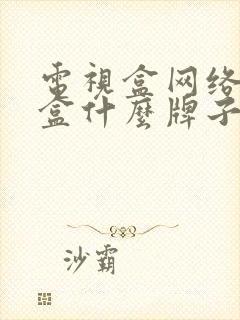 電視盒网络
盒什麼牌子
沙霸